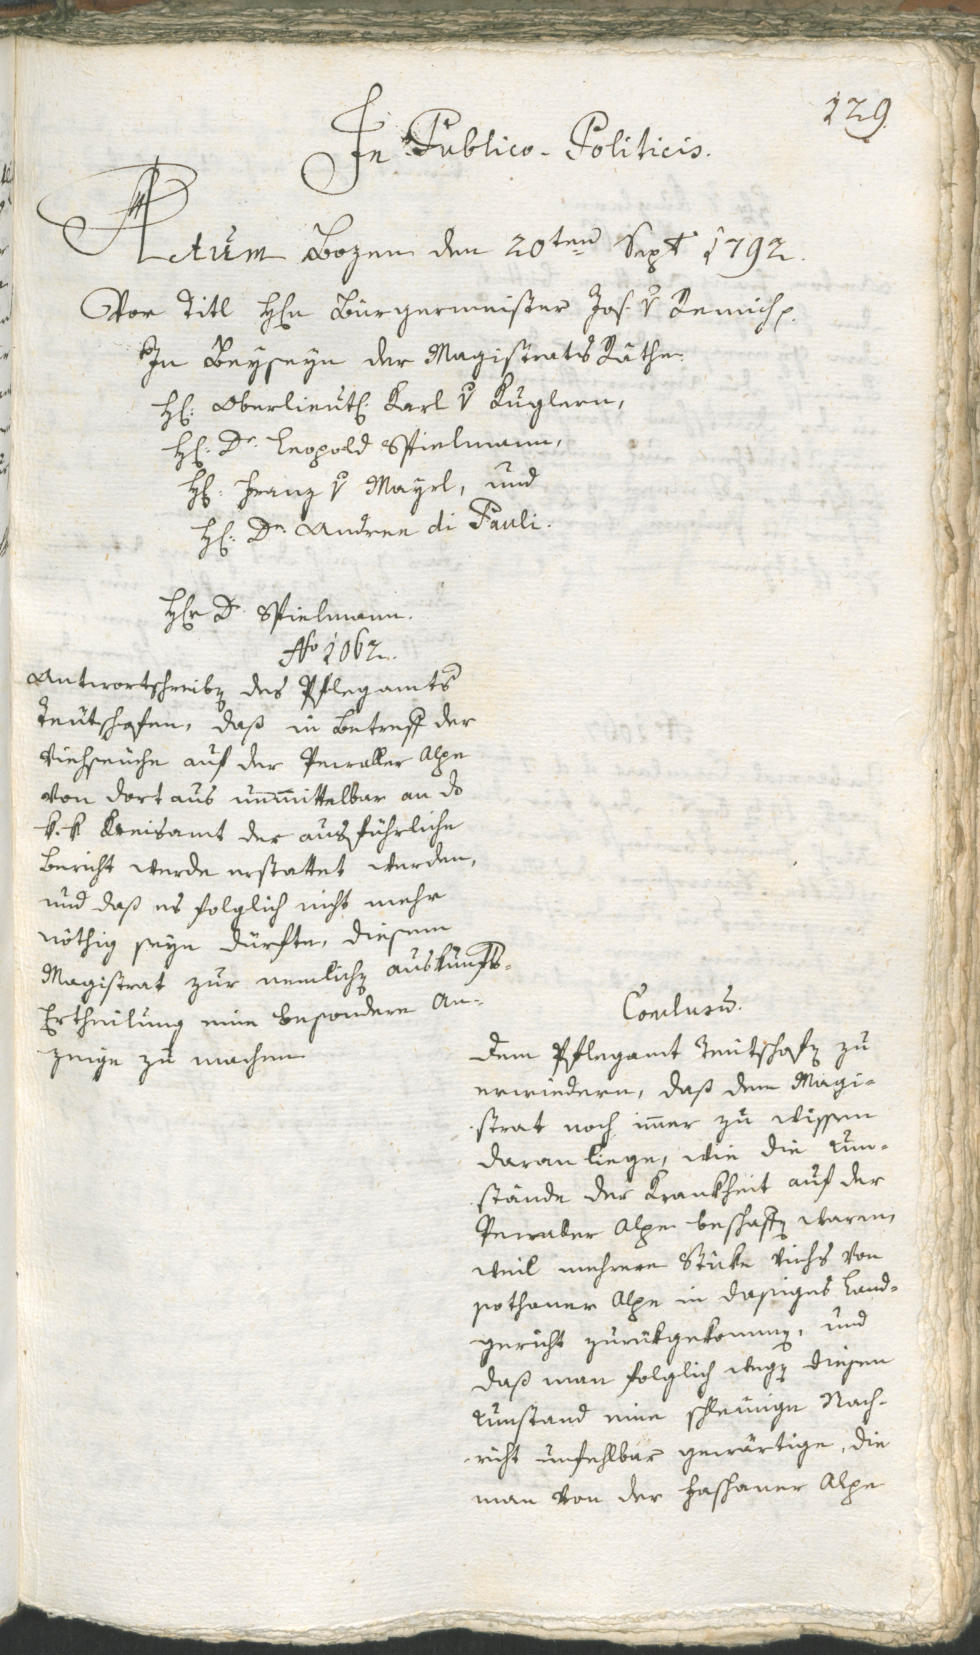 129.
In Publico-Politicis.
Actum Bozen den 20ten Sept 1792.
Vor Titl Hhn Bürgermeister Jos. v Remich p.
In Beyseyn der Magistrats Räthe.
HH: Oberlieut: Karl v Kuglern,
HH: Dr. Leopold Spielmann,
HH: Franz v Mayrl, und
HH: Dr. Andree di Pauli.
Hhr Dr. Spielmann.
No 1062.
Antwortschreiben des Pflegamts
Teutschofen, daß in Betreff der
Viehseuche auf der Alpe
von dort aus unmittelbar an das
k. k Kreisamt der ausführliche
Bericht werde erstattet werden,
und daß es folglich nicht mehr
nöthig seyn dürfte, diesem
Magistrat zur nemlichen Auskunfts-
Ertheilung eine besondere An-
zeige zu machen
Conclusum.
Dem Pflegamt Teutschofen zu
erwiedern, daß dem Magi-
strat noch immer zu wissen
daran liege, wie die Um-
stände der Krankheit auf der
Alpe beschaffen waren,
weil mehrere Stüke Viehs von
sothaner Alpe in dasiges Land-
gericht zurükgekommen, und
daß man folglich wegen diesem
Umstand eine schleunige Nach-
richt unfehlbar gewärtige, die
man von der Alpe